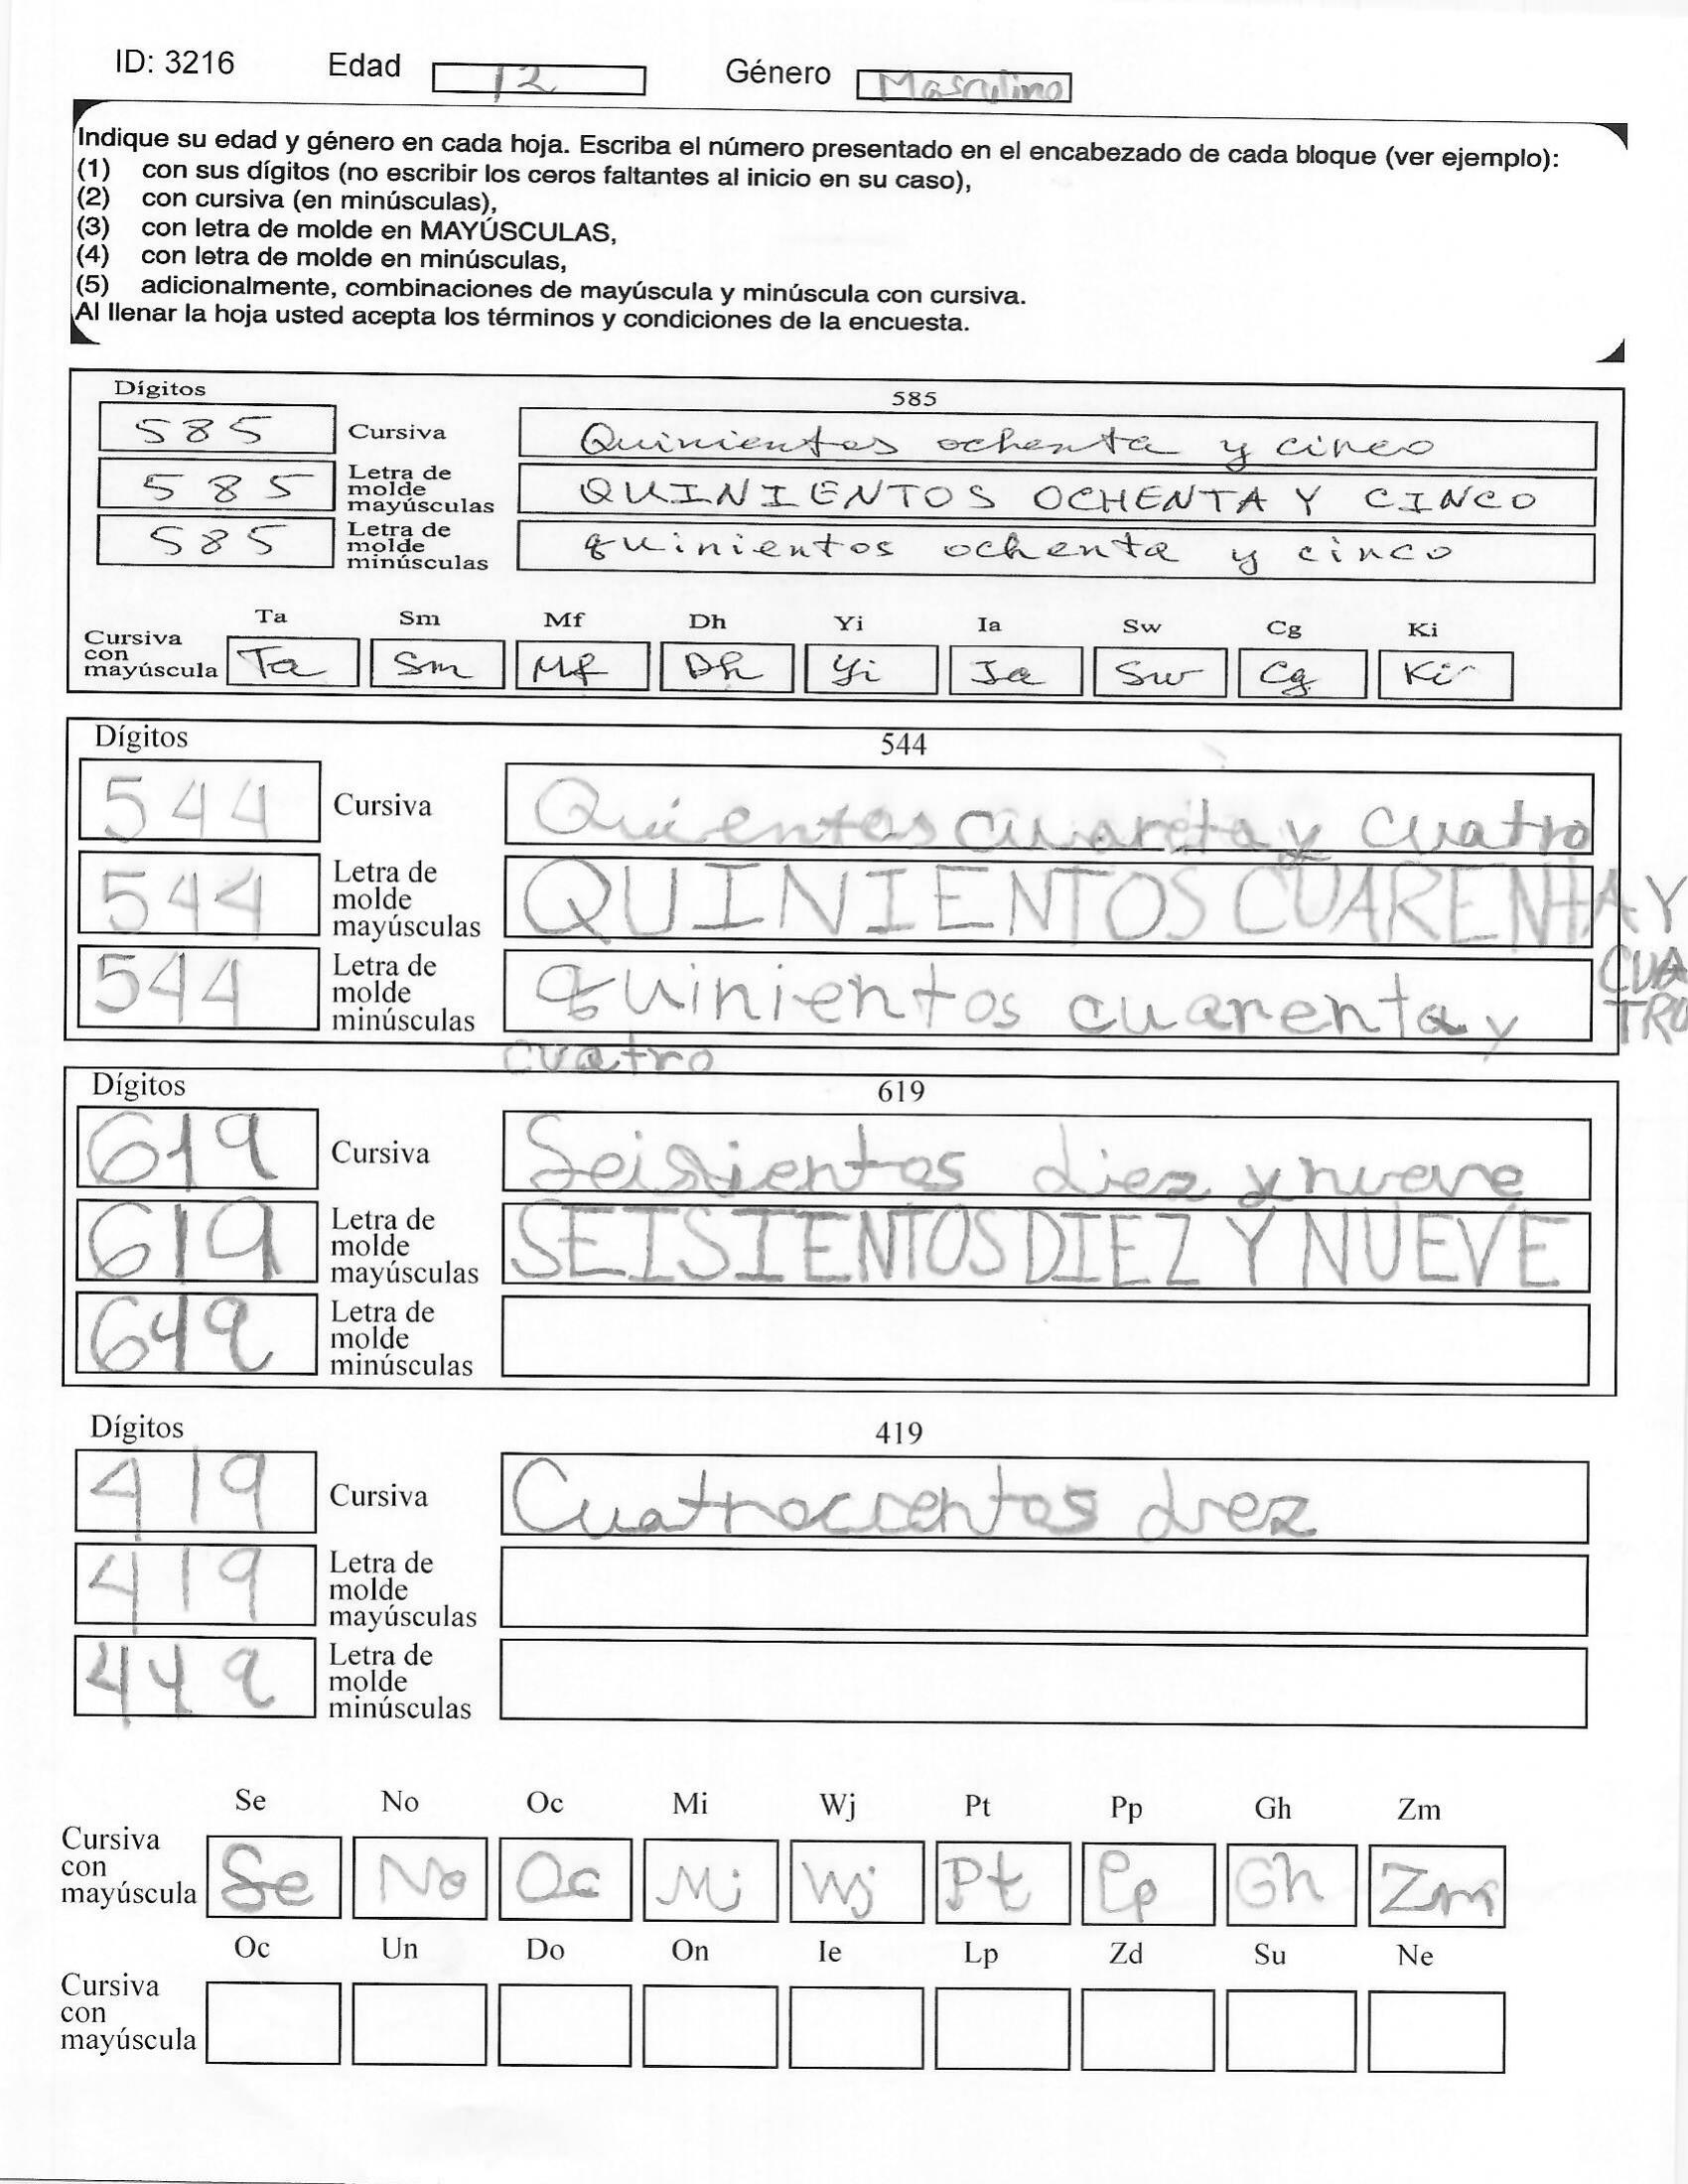 ID: 3216 Edad 12 Género Masculino
Indique su edad y género en cada hoja. Escriba el número presentado en el encabezado de cada bloque (ver ejemplo):
(1) con sus dígitos (no escribir los ceros faltantes al inicio en su caso),
(2) con cursiva (en minúsculas),
(3) con letra de molde en MAYÚSCULAS,
(4) con letra de molde en minúsculas,
(5) adicionalmente, combinaciones de mayúscula y minúscula con cursiva.
Al llenar la hoja usted acepta los términos y condiciones de la encuesta.
Dígitos 585
585 Cursiva Quinientos ochenta y cinco
585 Letra de molde mayúsculas QUINIENTOS OCHENTA Y CINCO
585 Letra de molde minúsculas quinientos ochenta y cinco
Ta Sm Mf Dh Yi Ia Sw Cg Ki
Cursiva con mayúscula Ta Sm Mf Dh Yi Ia Sw Cg Ki
Dígitos 544
544 Cursiva Quientos cuareta y cuatro
544 Letra de molde mayúsculas QUINIENTOS CUARENTA Y CUATRO
544 Letra de molde minúsculas quinientos cuarenta y
cuatro
Dígitos 619
619 Cursiva Seisientos diez y nueve
619 Letra de molde mayúsculas SEISIENTOS DIEZ Y NUEVE
619 Letra de molde minúsculas
Dígitos 419
419 Cursiva Cuatrocientos diez
419 Letra de molde mayúsculas
419 Letra de molde minúsculas
Se No Oc Mi Wj Pt Pp Gh Zm
Cursiva con mayúscula Se No Oc Mi Wj Pt Pp Gh Zm
Oc Un Do On Ie Lp Zd Su Ne
Cursiva con mayúscula